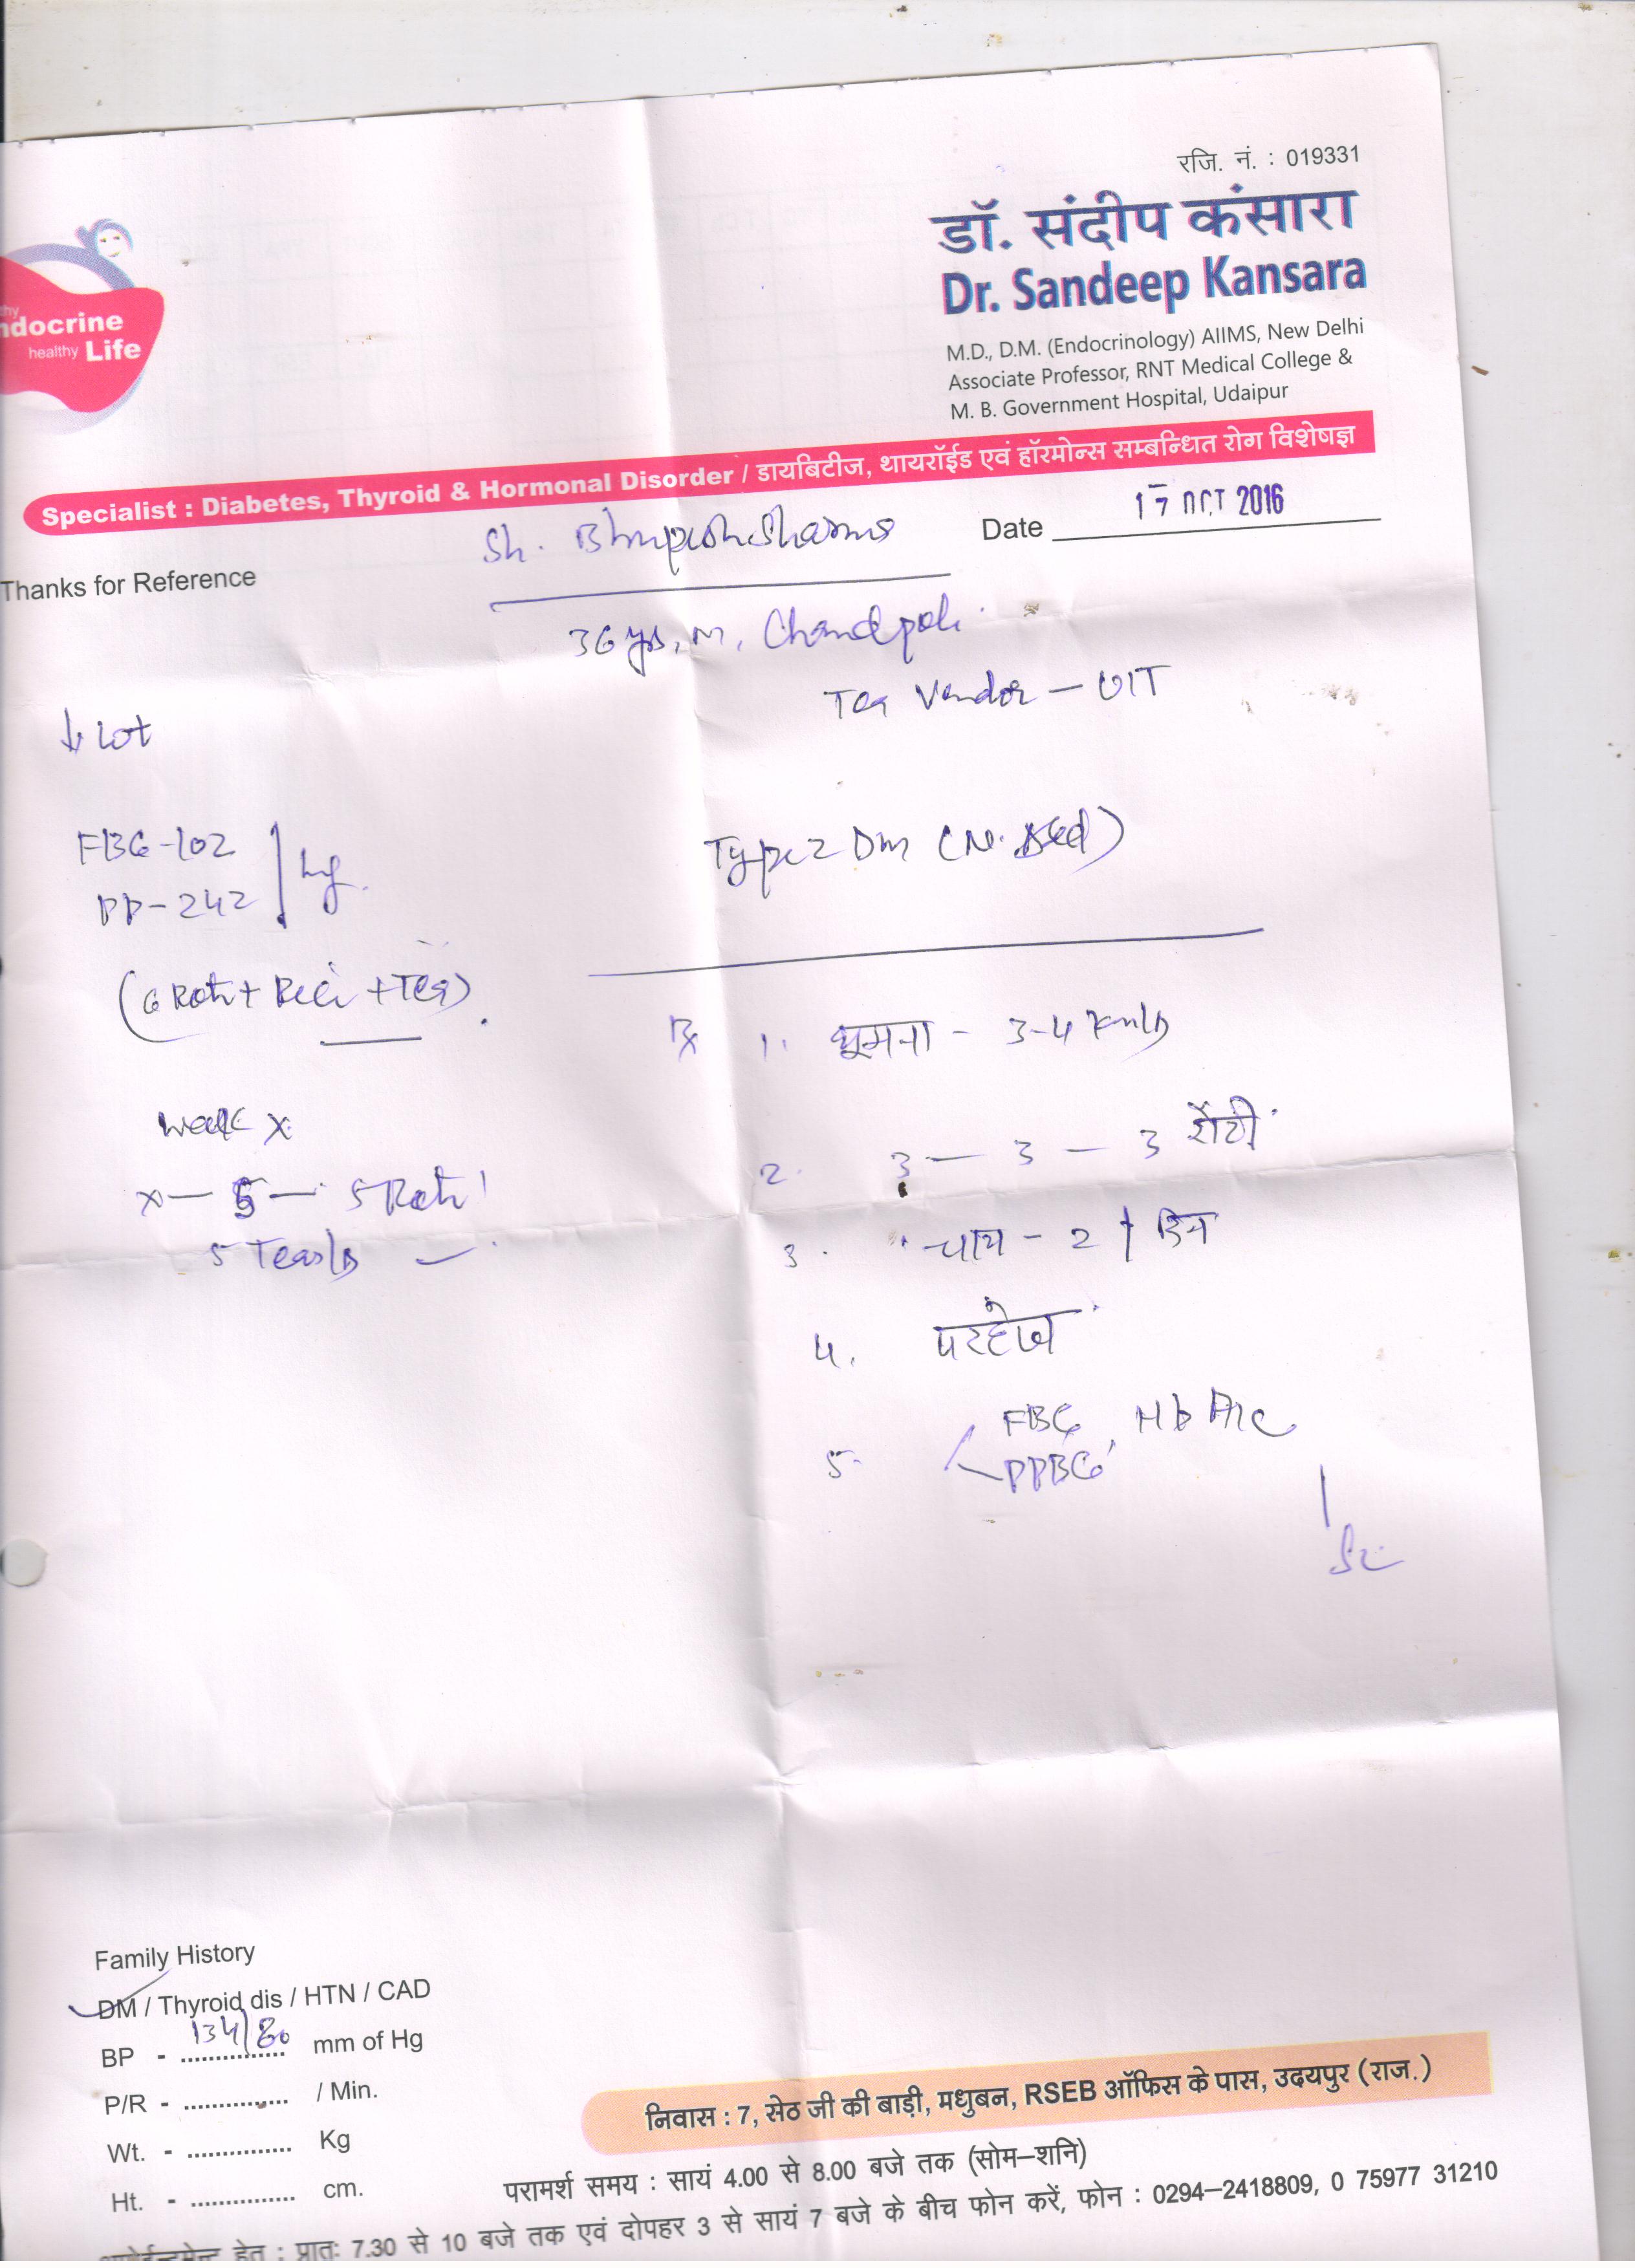 रजि. नं. : 019331
डॉ. संदीप कंसारा
Dr. Sandeep Kansara
M.D., D.M. (Endocrinology) AIIMS, New Delhi
Associate Professor, RNT Medical College &
M. B. Government Hospital, Udaipur
thy
ndocrine
healthy Life
Specialist : Diabetes, Thyroid & Hormonal Disorder / डायबिटीज, थायरॉईड एवं हॉरमोन्स सम्बन्धित रोग विशेषज्ञ
Date 17 OCT 2016
Thanks for Reference
Sh. Sharma
36 yrs, M, Chandpole
Tea Vendor - UIT
↓ Lot
FBG-102
PP-242
Type 2 Dm
(6 Roti + + Tea)
Rx 1. घूमना - 3-4 Km/D
Walk x
2. 3 - 3 - 3 रोटी
x - 5 - 5 Roti
3. चाय - 2 / दिन
5 Teas/D
4. परहेज
5. FBG, HbA1c
PPBG
Family History
DM / Thyroid dis / HTN / CAD
BP - 134/80 mm of Hg
P/R - ............... / Min.
Wt. - ............... Kg
Ht. - ............... cm.
निवास : 7, सेठ जी की बाड़ी, मधुबन, RSEB ऑफिस के पास, उदयपुर (राज.)
परामर्श समय : सायं 4.00 से 8.00 बजे तक (सोम–शनि)
हेतु : प्रातः 7.30 से 10 बजे तक एवं दोपहर 3 से सायं 7 बजे के बीच फोन करें, फोन : 0294–2418809, 0 75977 31210